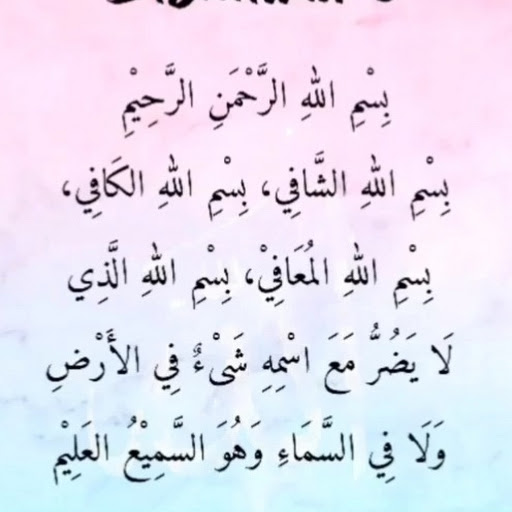 بِسْمِ اللهِ الرَّحْمَنِ الرَّحِيْمِ
بِسْمِ اللهِ الشَّافِي، بِسْمِ اللهِ الكَافِي،
بِسْمِ اللهِ المُعَافِيْ، بِسْمِ اللهِ الَّذِي
لَا يَضُرُّ مَعَ اسْمِهِ شَىْءٌ فِي الأَرْضِ
وَلَا فِي السَّمَاءِ وَهُوَ السَّمِيْعُ العَلِيْم